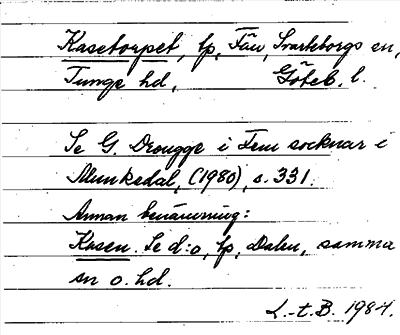 Kasetorpet, lp, Fäu, Svarteborgs sn,
Tunge hd, Göteb. l.
Se G. Drougge i Fem socknar i
Munkedal, (1980), s. 331.
Annan benämning:
Kasen. Se d:o, lp, Dalen, samma
sn o. hd.
L.-t.B. 1984.